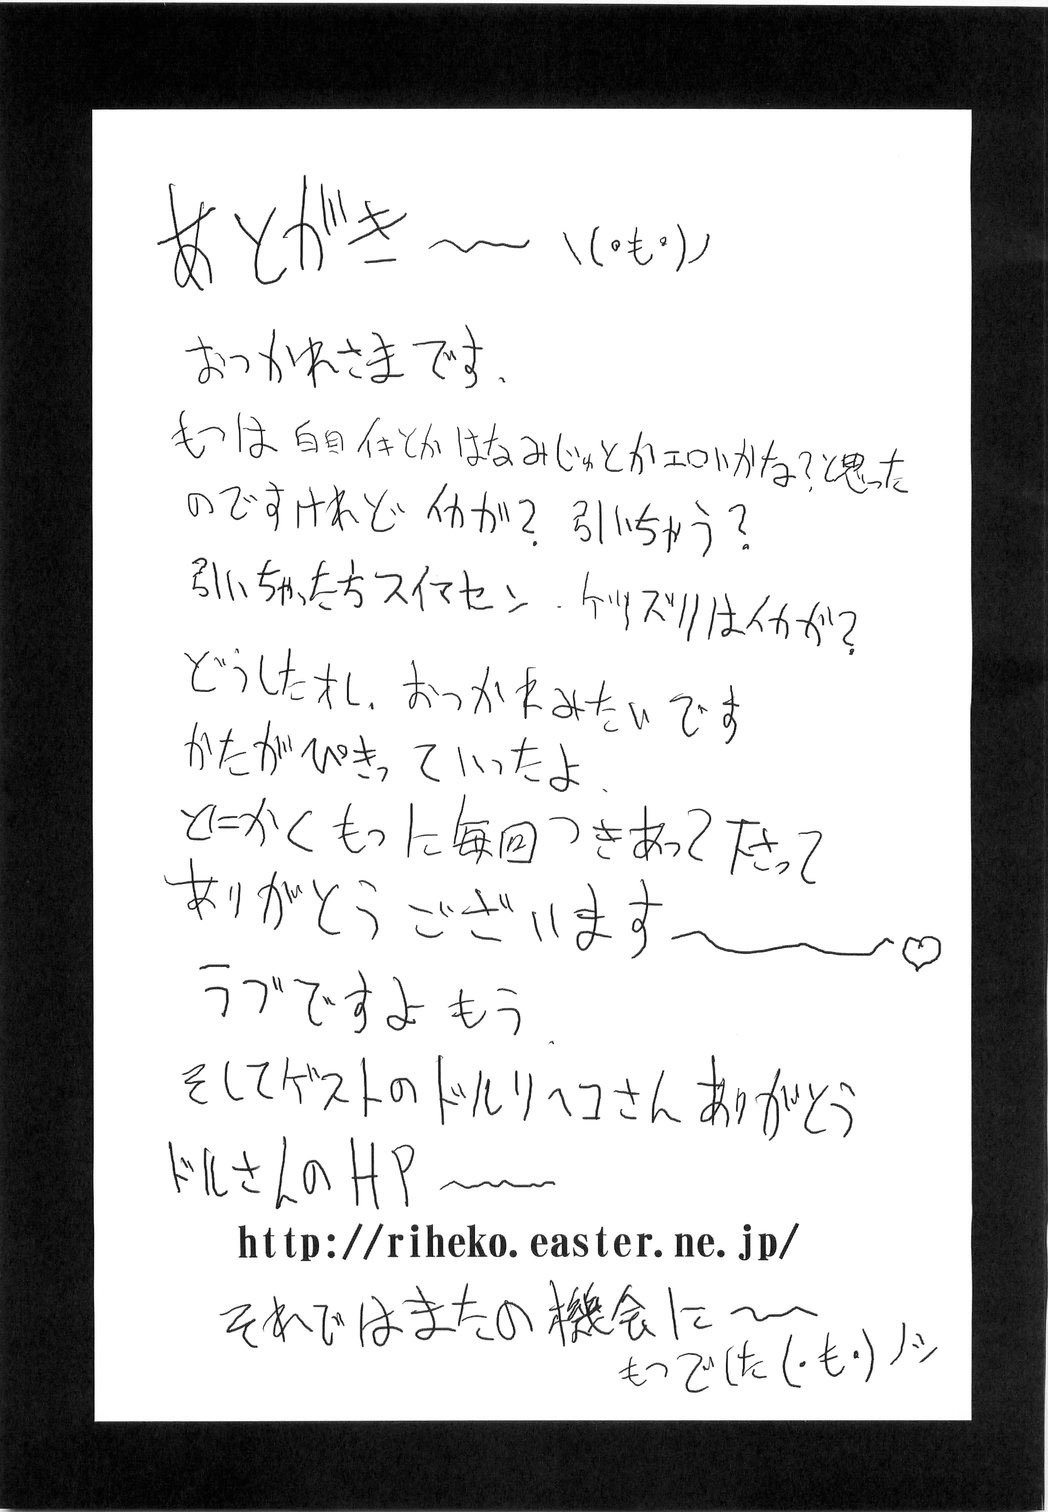 あとがき～ \(°も°)ノ
おつかれさまです、
もつは白目イキとかはなみじゅとかエロいかな？と思った
のですけれどイカが？引いちゃう？
引いちゃったらスイマセン．ケツズリはイカが？
どうしたオレ、おつかれみたいです
かたがぴきっていったよ、
とにかくもつに毎回つきあって下さって
ありがとうございます～♡
ラブですよもう、
そしてゲストのドルリヘコさんありがとう
ドルさんのHP～
http://riheko.easter.ne.jp/
それではまたの機会に～
もつでした(・も・)ノシ